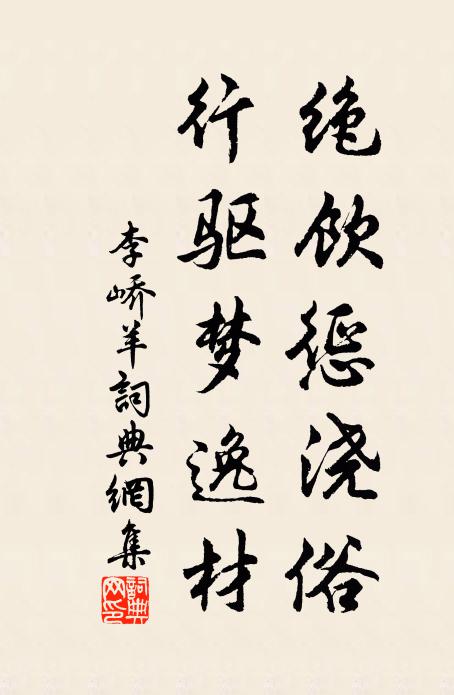 绝饮惩浇俗
行驱梦逸材
李峤羊詞典網集
詞典网印